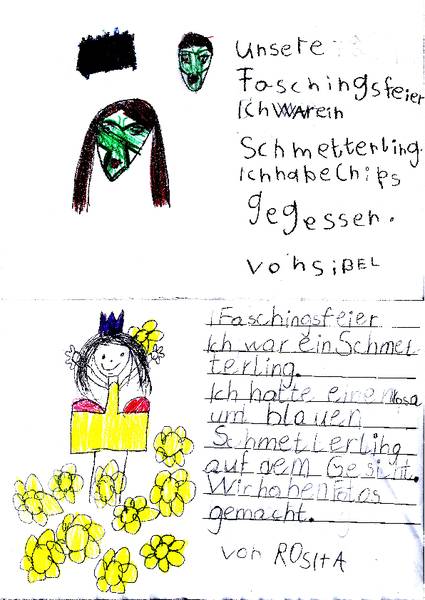 Unsere
Faschingsfeier
Ich war ein
Schmetterling.
Ich habe Chips
gegessen.
von SiBEL
Faschingsfeier
Ich war ein Schmet
terling.
Ich hatte einen rosa
und blauen
Schmetterling
auf dem Gesicht.
Wir haben Fotos
gemacht.
von ROSitA